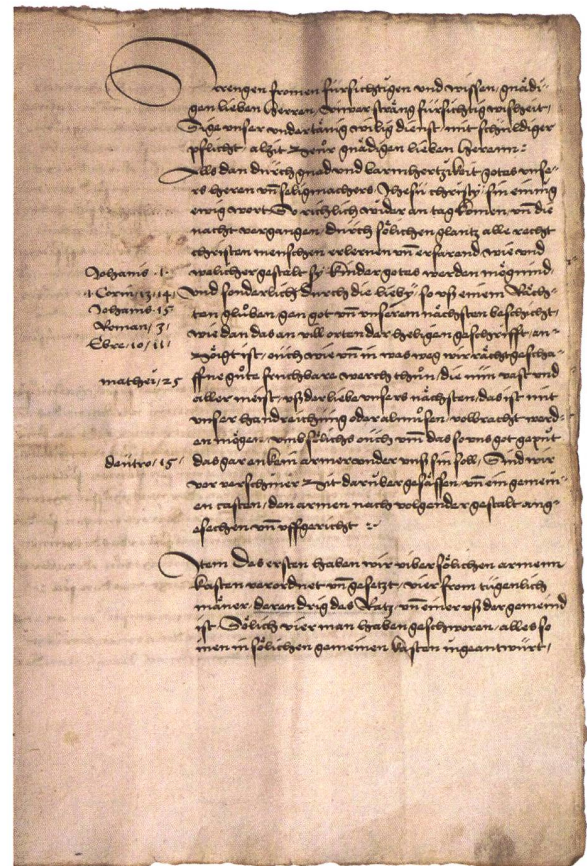 Strengen fromen fürsichtigen und wissen, gnädi-
gen lieben Herren, Üwer sträng fürsichtig wischeit,
Sige unser undertänig willig dienst, mit schuldiger
pflicht, alzit zeüor gnädigen lieben Herenn :
Alls dan durch gnad und barmhertzikeit gotes unse-
rs heren un seligmachers Jhesu christy, sin einnig
ewig wort So richlich wider an tag komen un die
nacht vergangen, durch sölichen glantz alle recht
christen menschen erlernen un erfarend, wie und
Johanis · 1 · walicher gestalt sy kinder gotes werden mögind,
1 Corin, 13, 14, Und sonderlich durch die lieby, so uß einem räch-
Johanis 15 ten glouben, gen got un unserem nächsten beschicht,
Roman, 3, wie dan das an vill orten der heligen geschrifft, an-
Ebre, 10, 11, zöigt ist, ouch wie un in was weg wir rächt gescha-
ffne guote fruchbare werch thun, die nun vast und
mathei, 25 aller meist, uß der liebe unsers nächsten, das ist mit
unser handreichung oder almuosen, volbracht werd-
en mögen, umb sölichs ouch un das so uns got gepüt
deütro, 15, das gar enkein armer under unß sin soll, Sind wir
vor verschiner zit darüber gesässen, un ein gemein-
en casten, den armen nach volgender gestalt ang-
esechen un uffgericht :
Item Des ersten haben wir über sölichen armenn
kasten verordnet un gesetzt, vier from tugenlich
mäner, deren drig das Ratz, un einer uß der gemeind
ist, Sölich vier man haben geschworen, alles so
inen in sölichen gemeinen kasten ingeantwürt,